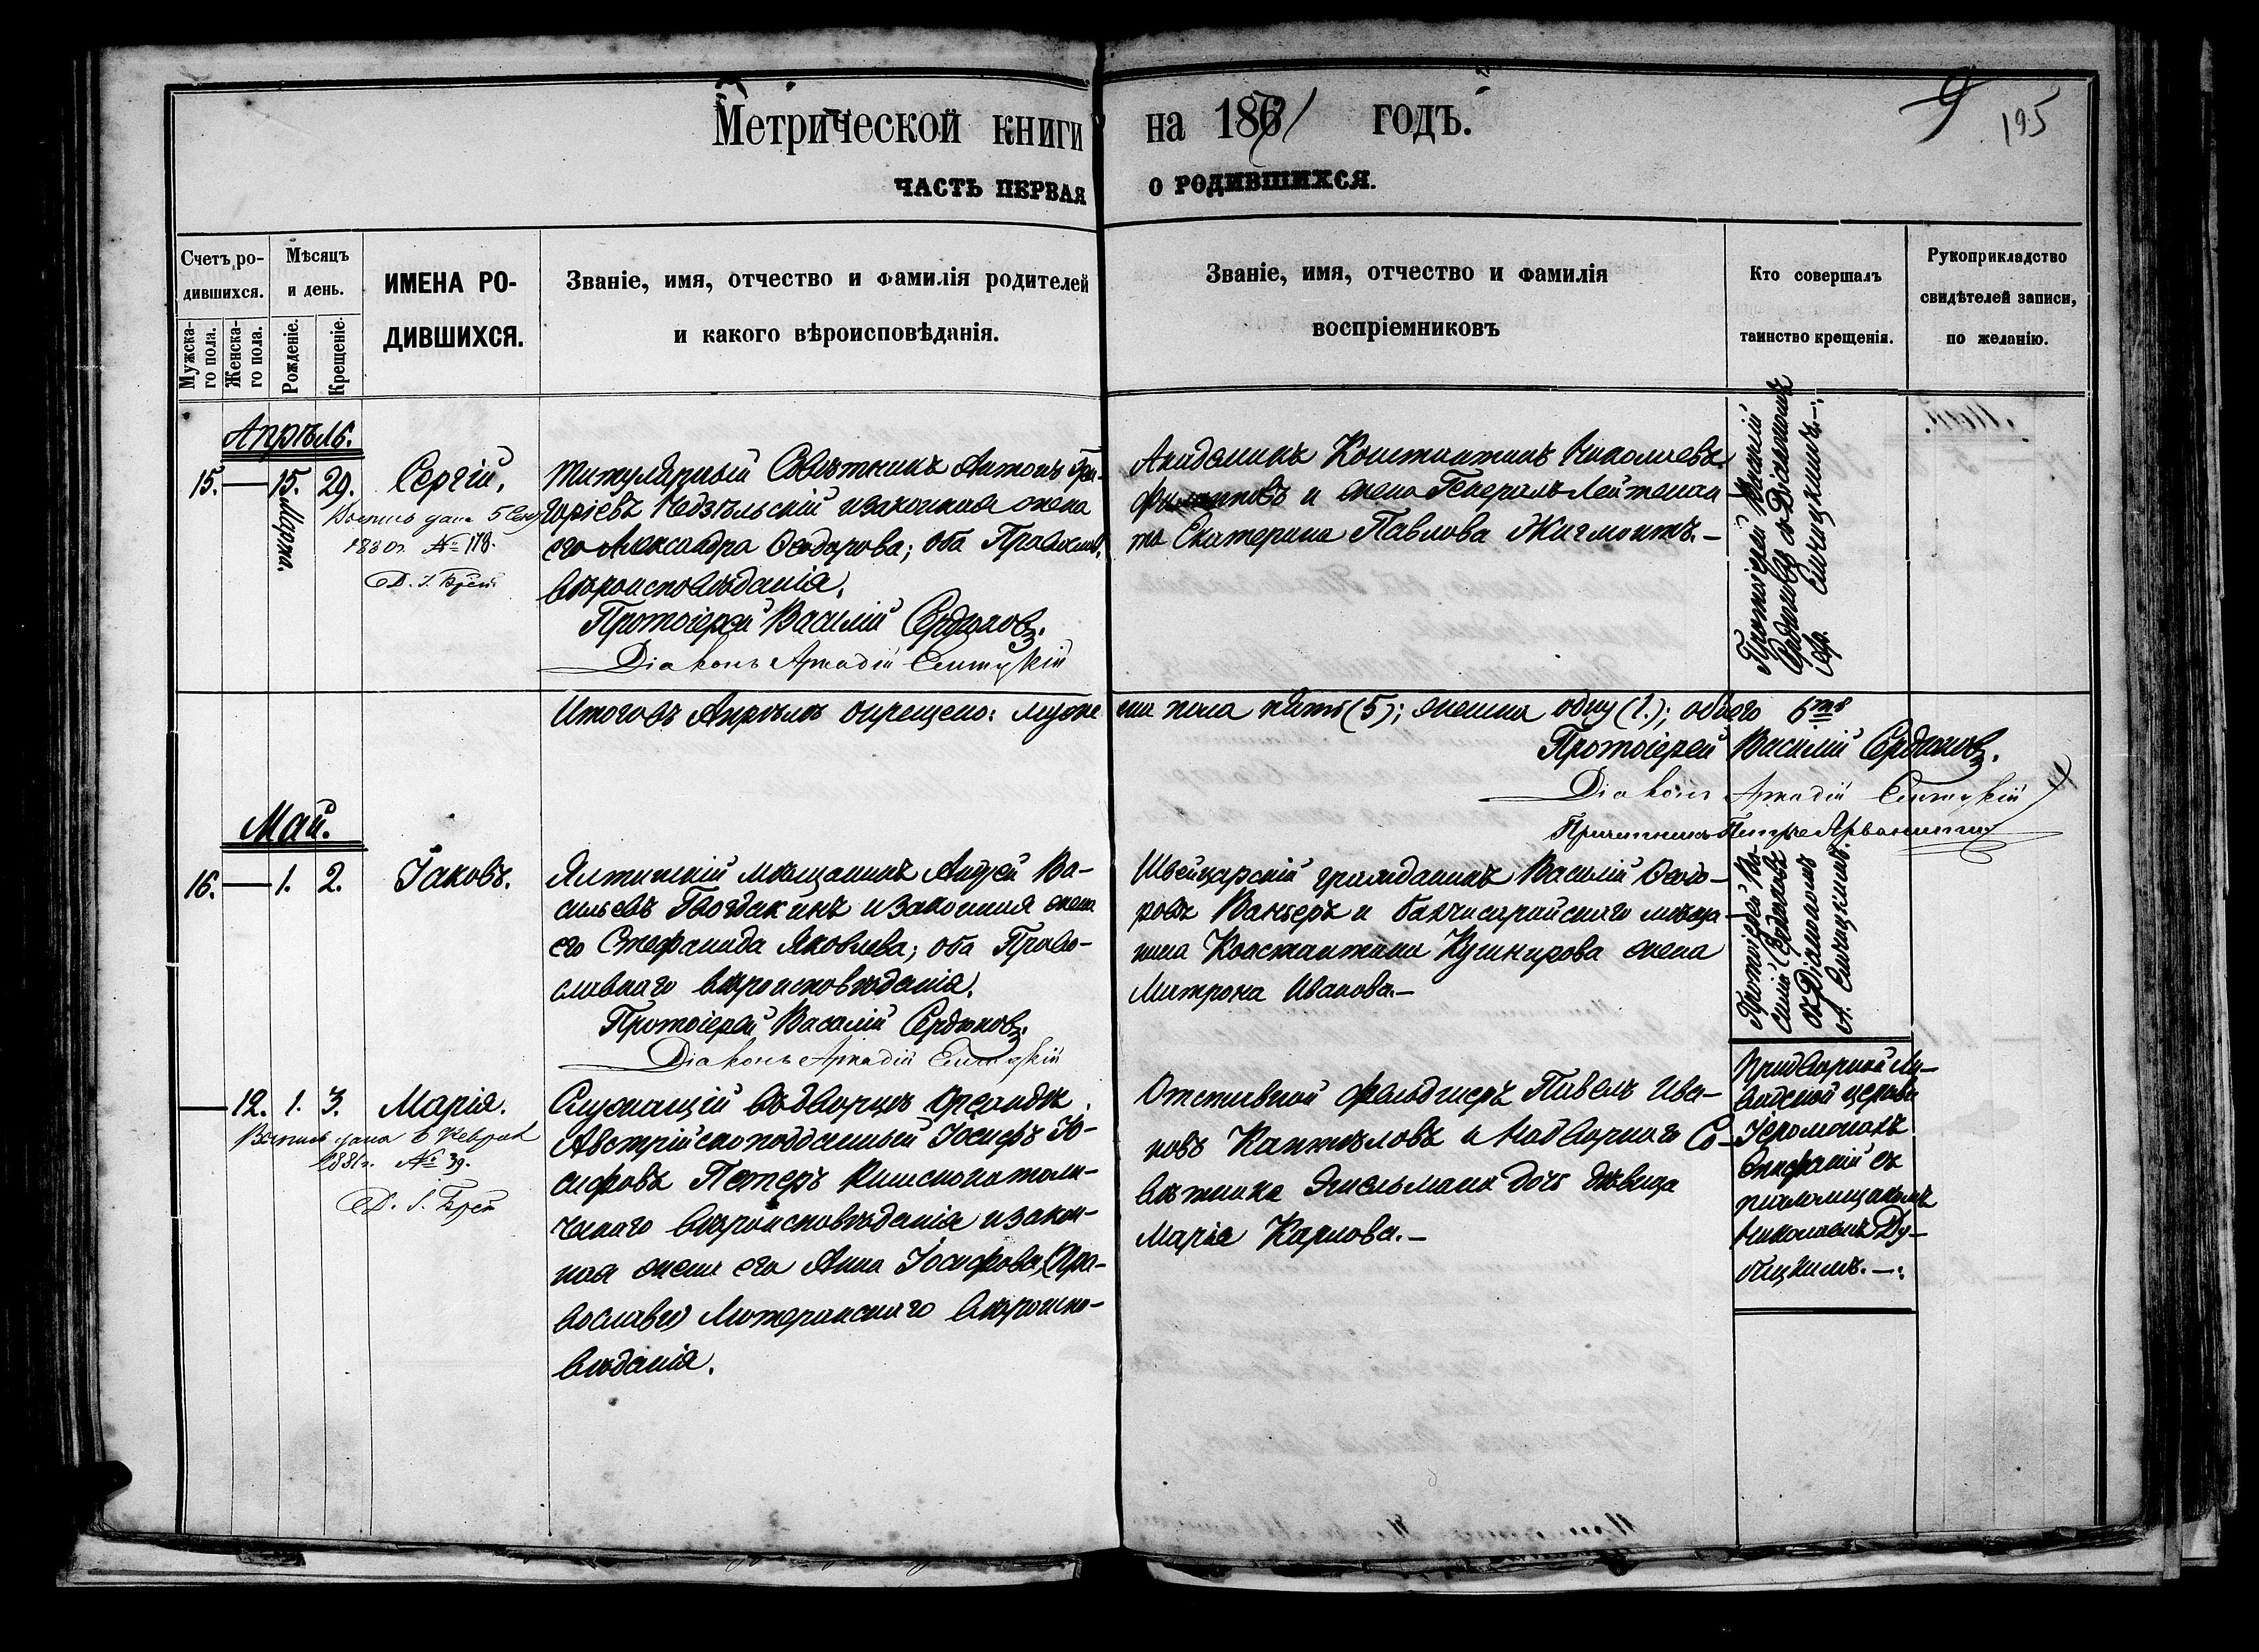 Метрической книги на 1871 годъ.
9 195
ЧАСТЬ ПЕРВАЯ О РОДИВШИХСЯ.
Счетъ ро-
дившихся.
Мужска-
го пола.
Женска-
го пола.
Мѣсяцъ
и день.
Рожденіе.
Крещеніе.
ИМЕНА РО-
ДИВШИХСЯ.
Званіе, имя, отчество и фамилія родителей
и какого вѣроисповѣданія.
Званіе, имя, отчество и фамилія
воспріемниковъ
Кто совершалъ
таинство крещенія.
Рукоприкладство
свидѣтелей записи,
по желанію.
Апрѣль.
15. — 15. Марта. 29.
Сергій,
Выпись дана 5 Сен
1880г. № 178.
Титулярный Совѣтникъ Антонъ Гри-
горіевъ Недзѣльскій и законная жена
его Александра Ѳеодорова; оба Православ.
вѣроисповѣданія.
Протоіерей Василій Сердюковъ.
Діаконъ Аркадій
Академикъ Константинъ Николаевъ
и жена Генералъ-Лейтенан-
та Екатерина Павлова Жигмонтъ.—
Протоіерей Василій
Сердюковъ съ Діакономъ
Итого въ Апрѣлѣ окрещено: муже
ска пола пять (5); женска одну (1.); обоего 6ть
Протоіерей Василій Сердюковъ.
Діаконъ Аркадій
Причетникъ Петръ
Май.
16. — 1. 2.
Іаковъ.
Ялтинскій мѣщанинъ Андрей Ва-
сильевъ и законная жена
его Стефанида Яковлева; оба Право-
славнаго вѣроисповѣданія.
Протоіерей Василій Сердюковъ.
Діаконъ Аркадій
Швейцарскій гражданинъ Василій Ѳеодо-
ровъ Ваньеръ и бахчисарайскаго мѣща-
нина Константина Кушнирова жена
Матрона Иванова.—
Протоіерей Ва-
силій Сердюковъ
съ Діакономъ
А.
— 12. 1. 3.
Марія.
Выпись дана 6 Февраля
1881г. № 39.
Служащій въ дворцѣ Ореандѣ
Австрійскоподданный Іосифъ Іо-
сифовъ Петеръ Римскокатоли-
ческаго вѣроисповѣданія и закон-
ная жена его Анна Іосифова, (Пра-
вославн) Лютеранскаго вѣроиспо-
вѣданія.
Отставной фельдшеръ Павелъ Ива-
новъ и Надворнаго Со-
вѣтника дочь дѣвица
Марія Карлова.—
Придворной Ли-
вадской церкви
Іеромонахъ
Епифаній съ
псаломщикомъ
Николаемъ Ду-
бицкимъ.—